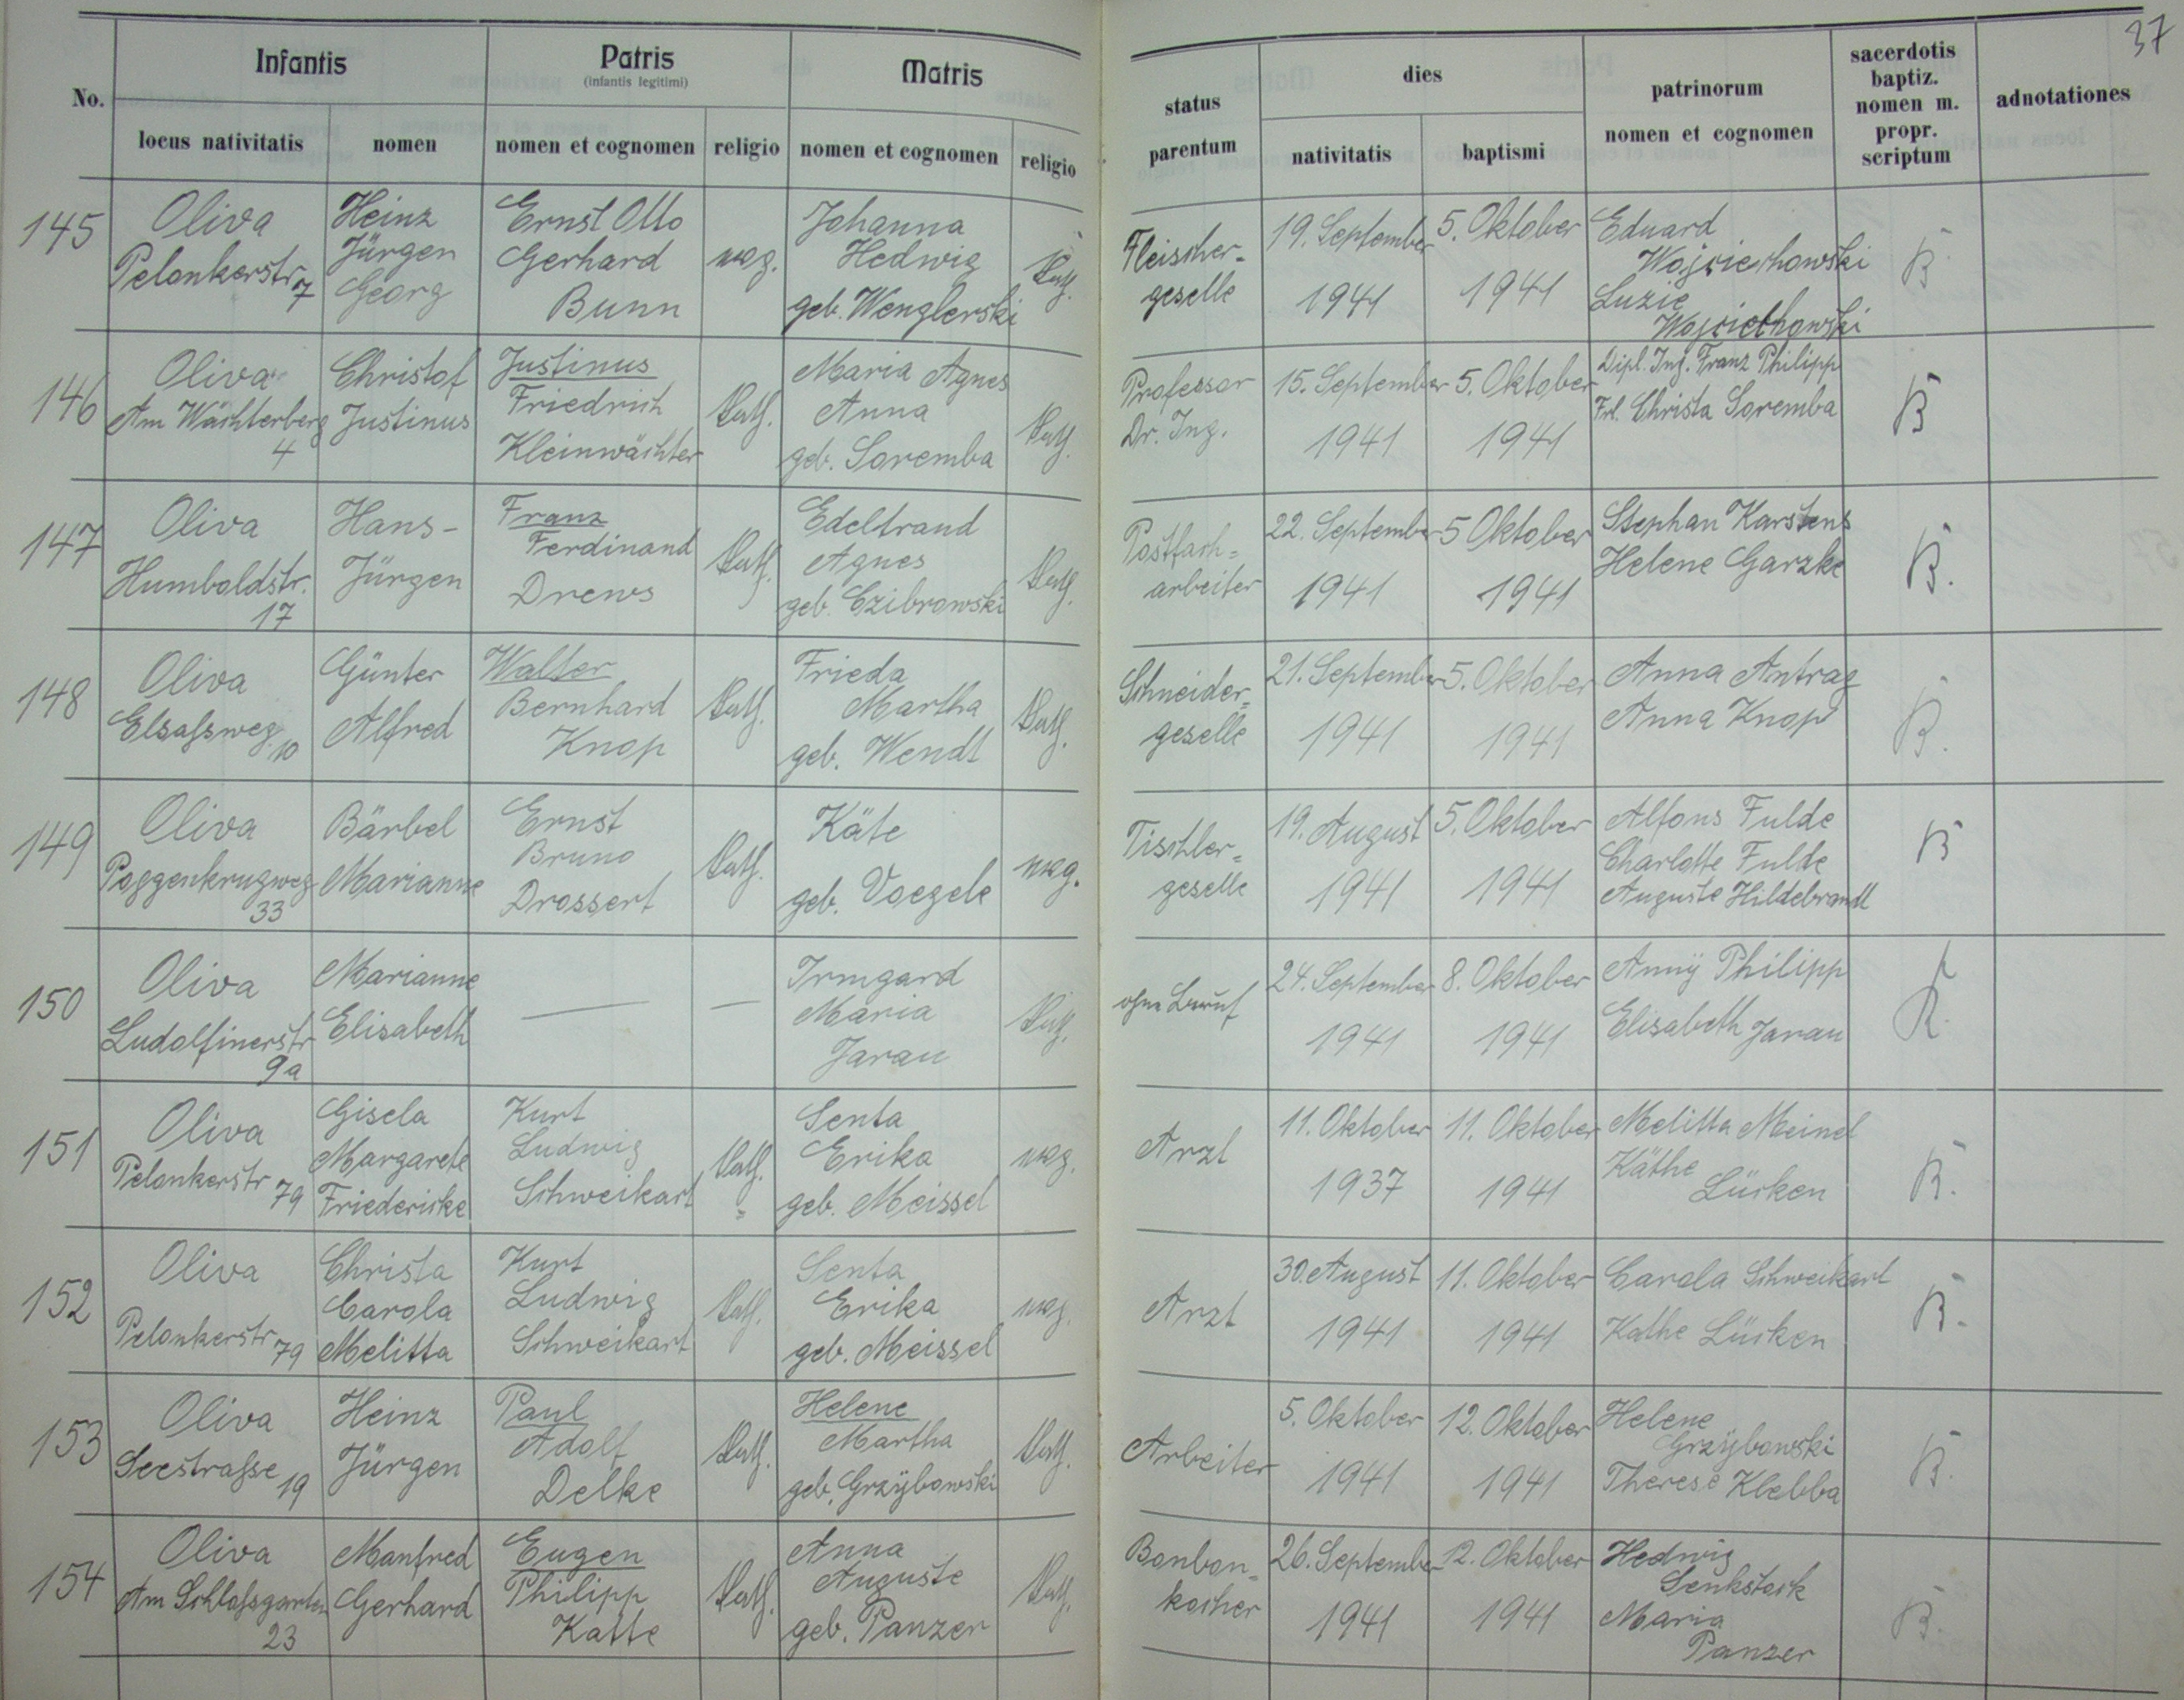 37
Infantis
Patris
(infantis legitimi)
Matris
No.
locus nativitatis
nomen
nomen et cognomen
religio
nomen et cognomen
religio
status
parentum
dies
nativitatis
baptismi
patrinorum
nomen et cognomen
sacerdotis
baptiz.
nomen m.
propr.
scriptum
adnotationes
145
Oliva
Pelonkerstr
7
Heinz
Jürgen
Georg
Ernst Otto
Gerhard
Bunn
evg.
Johanna
Hedwig
geb. Wenglerski
kath.
Fleischer=
geselle
19. September
1941
5. Oktober
1941
Eduard
Wojciechowski
Luzie
Wojciechowski
B
146
Oliva
Am Wächterberg
4
Christof
Justinus
Justinus
Friedrich
Kleinwächter
kath.
Maria Agnes
Anna
geb. Soremba
kath.
Professor
Dr. Ing.
15. September
1941
5. Oktober
1941
Dipl. Ing. Franz Philipp
Frl. Christa Soremba
B
147
Oliva
Humboldstr.
17
Hans-
Jürgen
Franz
Ferdinand
Drews
kath.
Edeltrand
Agnes
geb. Czibrowski
kath.
Postfach=
arbeiter
22. September
1941
5 Oktober
1941
Stephan Karstens
Helene Garzke
B.
148
Oliva
Elsaßweg
10
Günter
Alfred
Walter
Bernhard
Knop
kath.
Frieda
Martha
geb. Wendt
kath.
Schneider=
geselle
21. September
1941
5. Oktober
1941
Anna Antrag
Anna Knop
B.
149
Oliva
Poggenkrugweg
33
Bärbel
Marianne
Ernst
Bruno
Drossert
kath.
Käte
geb. Voegele
evg.
Tischler=
geselle
19. August
1941
5. Oktober
1941
Alfons Fulde
Charlotte Fulde
Auguste Hildebrandt
B
150
Oliva
Ludolfinerstr
9a
Marianne
Elisabeth
—
—
Irmgard
Maria
Jarau
kath.
ohne Beruf
24. September
1941
8. Oktober
1941
Anny Philipp
Elisabeth Jarau
151
Oliva
Pelonkerstr
79
Gisela
Margarete
Friedericke
Kurt
Ludwig
Schweikart
kath.
Senta
Erika
geb. Meissel
evg.
Arzt
11. Oktober
1937
11. Oktober
1941
Melitta Meinel
Käthe
Lücken
B.
152
Oliva
Pelonkerstr
79
Christa
Carola
Melitta
Kurt
Ludwig
Schweikart
kath.
Senta
Erika
geb. Meissel
evg.
Arzt
30. August
1941
11. Oktober
1941
Carola Schweikart
Käthe Lücken
B.
153
Oliva
Seestraße
19
Heinz
Jürgen
Paul
Adolf
Delke
kath.
Helene
Martha
geb. Grzybowski
kath.
Arbeiter
5. Oktober
1941
12. Oktober
1941
Helene
Grzybowski
Therese Klebba
B.
154
Oliva
Am Schloßgarten
23
Manfred
Gerhard
Eugen
Philipp
Katte
kath.
Anna
Auguste
geb. Panzer
kath.
Bonbon=
kocher
26. September
1941
12. Oktober
1941
Hedwig
Senkstock
Maria
Panzer
B.